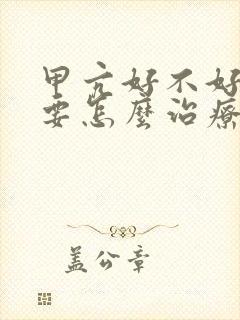 甲亢好不好
要怎麼治療
盖公章